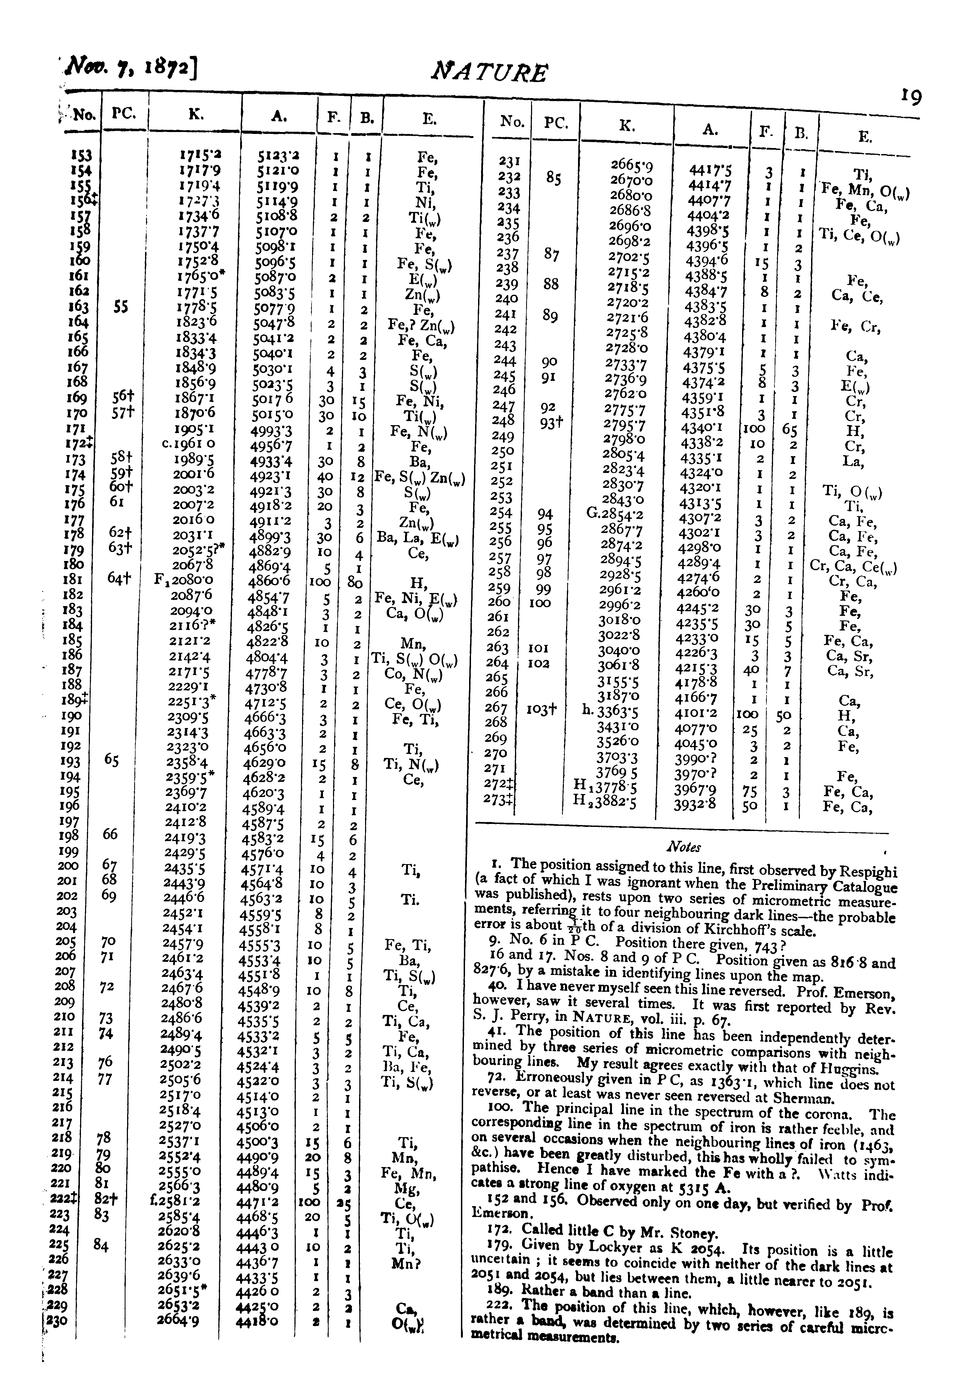 Nov. 7, 1872] NATURE 19
No. PC. K. A. F. B. E.
153 1715·2 5123·2 1 1 Fe,
154 1717·9 5121·0 1 1 Fe,
155 1719·4 5119·9 1 1 Ti,
156‡ 1727·3 5114·9 1 1 Ni,
157 1734·6 5108·8 2 2 Ti(w)
158 1737·7 5107·0 1 1 Fe,
159 1750·4 5098·1 1 1 Fe,
160 1752·8 5096·5 1 1 Fe, S(w)
161 1765·0* 5087·0 2 1 E(w)
162 1771·5 5083·5 1 1 Zn(w)
163 55 1778·5 5077·9 1 2 Fe,
164 1823·6 5047·8 2 2 Fe,? Zn(w)
165 1833·4 5041·2 2 2 Fe, Ca,
166 1834·3 5040·1 2 2 Fe,
167 1848·9 5030·1 4 3 S(w)
168 1856·9 5023·5 3 1 S(w)
169 56† 1867·1 5017·6 30 15 Fe, Ni,
170 57† 1870·6 5015·0 30 10 Ti(w)
171 1905·1 4993·3 2 1 Fe, N(w)
172‡ c.1961·0 4956·7 1 2 Fe,
173 58† 1989·5 4933·4 30 8 Ba,
174 59† 2001·6 4923·1 40 12 Fe, S(w) Zn(w)
175 60† 2003·2 4921·3 30 8 S(w)
176 61 2007·2 4918·2 20 3 Fe,
177 2016·0 4911·2 3 2 Zn(w)
178 62† 2031·1 4899·3 30 6 Ba, La, E(w)
179 63† 2052·5?* 4882·9 10 4 Ce,
180 2067·8 4869·4 5 1
181 64† F,2080·0 4860·6 100 80 H,
182 2087·6 4854·7 5 2 Fe, Ni, E(w)
183 2094·0 4848·1 3 2 Ca, O(w)
184 2116·?* 4826·5 1 1
185 2121·2 4822·8 10 2 Mn,
186 2142·4 4804·4 3 1 Ti, S(w) O(w)
187 2171·5 4778·7 3 2 Co, N(w)
188 2229·1 4730·8 1 1 Fe,
189‡ 2251·3* 4712·5 2 2 Ce, O(w)
190 2309·5 4666·3 3 1 Fe, Ti,
191 2314·3 4663·3 2 1
192 2323·0 4656·0 2 1 Ti,
193 65 2358·4 4629·0 15 8 Ti, N(w)
194 2359·5* 4628·2 2 1 Ce,
195 2369·7 4620·3 1 1
196 2410·2 4589·4 1 1
197 2412·8 4587·5 2 2
198 66 2419·3 4583·2 15 6
199 2429·5 4576·0 4 2
200 67 2435·5 4571·4 10 4 Ti,
201 68 2443·9 4564·8 10 3
202 69 2446·6 4563·2 10 5 Ti.
203 2452·1 4559·5 8 2
204 2454·1 4558·1 8 1
205 70 2457·9 4555·3 10 5 Fe, Ti,
206 71 2461·2 4553·4 10 5 Ba,
207 2463·4 4551·8 1 1 Ti, S(w)
208 72 2467·6 4548·9 10 8 Ti,
209 2480·8 4539·2 2 1 Ce,
210 73 2486·6 4535·5 2 2 Ti, Ca,
211 74 2489·4 4533·2 5 5 Fe,
212 2490·5 4532·1 3 2 Ti, Ca,
213 76 2502·2 4524·4 3 2 Ba, Fe,
214 77 2505·6 4522·0 3 3 Ti, S(w)
215 2517·0 4514·0 2 1
216 2518·4 4513·0 1 1
217 2527·0 4506·0 2 1
218 78 2537·1 4500·3 15 6 Ti,
219 79 2552·4 4490·9 20 8 Mn,
220 80 2555·0 4489·4 15 3 Fe, Mn,
221 81 2566·3 4480·9 5 2 Mg,
222‡ 82† f.2581·2 4471·2 100 25 Ce,
223 83 2585·4 4468·5 20 5 Ti, O(w)
224 2620·8 4446·3 1 1 Ti,
225 84 2625·2 4443·0 10 2 Ti,
226 2633·0 4436·7 1 2 Mn?
227 2639·6 4433·5 1 1
228 2651·5* 4426·0 2 3
229 2653·2 4425·0 2 2 Ca,
230 2664·9 4418·0 2 1 O(w),
No. PC. K. A. F. B. E.
231 2665·9 4417·5 3 1 Ti,
232 85 2670·0 4414·7 1 1 Fe, Mn, O(w)
233 2680·0 4407·7 1 1 Fe, Ca,
234 2686·8 4404·2 1 1 Fe,
235 2696·0 4398·5 1 1 Ti, Ce, O(w)
236 2698·2 4396·5 1 2
237 87 2702·5 4394·6 15 3
238 2715·2 4388·5 1 1 Fe,
239 88 2718·5 4384·7 8 2 Ca, Ce,
240 2720·2 4383·5 1 1
241 89 2721·6 4382·8 1 1 Fe, Cr,
242 2725·8 4380·4 1 1
243 2728·0 4379·1 1 1 Ca,
244 90 2733·7 4375·5 5 3 Fe,
245 91 2736·9 4374·2 8 3 E(w)
246 2762·0 4359·1 1 1 Cr,
247 92 2775·7 4351·8 3 1 Cr,
248 93† 2795·7 4340·1 100 65 H,
249 2798·0 4338·2 10 2 Cr,
250 2805·4 4335·1 2 1 La,
251 2823·4 4324·0 1 2
252 2830·7 4320·1 1 1 Ti, O(w)
253 2843·0 4313·5 1 1 Ti,
254 94 G.2854·2 4307·2 3 2 Ca, Fe,
255 95 2867·7 4302·1 3 2 Ca, Fe,
256 96 2874·2 4298·0 1 1 Ca, Fe,
257 97 2894·5 4289·4 1 1 Cr, Ca, Ce(w)
258 98 2928·5 4274·6 2 1 Cr, Ca,
259 99 2961·2 4260·0 2 1 Fe,
260 100 2996·2 4245·2 30 3 Fe,
261 3018·0 4235·5 30 5 Fe,
262 3022·8 4233·0 15 5 Fe, Ca,
263 101 3040·0 4226·3 3 3 Ca, Sr,
264 102 3061·8 4215·3 40 7 Ca, Sr,
265 3155·5 4178·8 1 1
266 3187·0 4166·7 1 1 Ca,
267 103† h.3363·5 4101·2 100 50 H,
268 3431·0 4077·0 25 2 Ca,
269 3526·0 4045·0 3 2 Fe,
270 3703·3 3990·? 2 1
271 3769·5 3970·? 2 1 Fe,
272‡ H₁3778·5 3967·9 75 3 Fe, Ca,
273‡ H₂3882·5 3932·8 50 1 Fe, Ca,
Notes
1. The position assigned to this line, first observed by Respighi
(a fact of which I was ignorant when the Preliminary Catalogue
was published), rests upon two series of micrometric measure-
ments, referring it to four neighbouring dark lines—the probable
error is about 1/20th of a division of Kirchhoff's scale.
9. No. 6 in P C. Position there given, 743?
16 and 17. Nos. 8 and 9 of P C. Position given as 816·8 and
827·6, by a mistake in identifying lines upon the map.
40. I have never myself seen this line reversed. Prof. Emerson,
however, saw it several times. It was first reported by Rev.
S. J. Perry, in NATURE, vol. iii. p. 67.
41. The position of this line has been independently deter-
mined by three series of micrometric comparisons with neigh-
bouring lines. My result agrees exactly with that of Huggins.
72. Erroneously given in P C, as 1363·1, which line does not
reverse, or at least was never seen reversed at Sherman.
100. The principal line in the spectrum of the corona. The
corresponding line in the spectrum of iron is rather feeble, and
on several occasions when the neighbouring lines of iron (1463,
&c.) have been greatly disturbed, this has wholly failed to sym-
pathise. Hence I have marked the Fe with a ?. Watts indi-
cates a strong line of oxygen at 5315 A.
152 and 156. Observed only on one day, but verified by Prof.
Emerson.
172. Called little C by Mr. Stoney.
179. Given by Lockyer as K 2054. Its position is a little
uncertain; it seems to coincide with neither of the dark lines at
2051 and 2054, but lies between them, a little nearer to 2051.
189. Rather a band than a line.
222. The position of this line, which, however, like 189, is
rather a band, was determined by two series of careful micro-
metrical measurements.